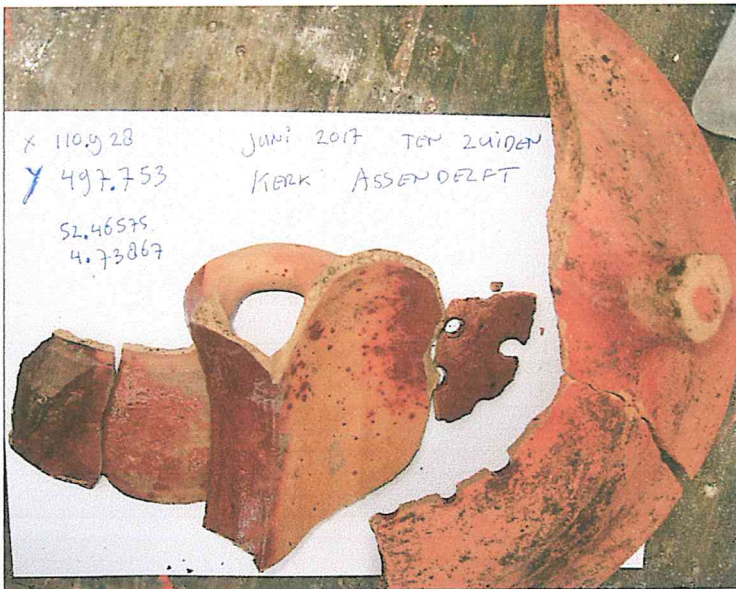 x 110.928
y 497.753
52.46575
4.73867
Juni 2017 TEN ZUIDEN
KERK ASSENDELFT